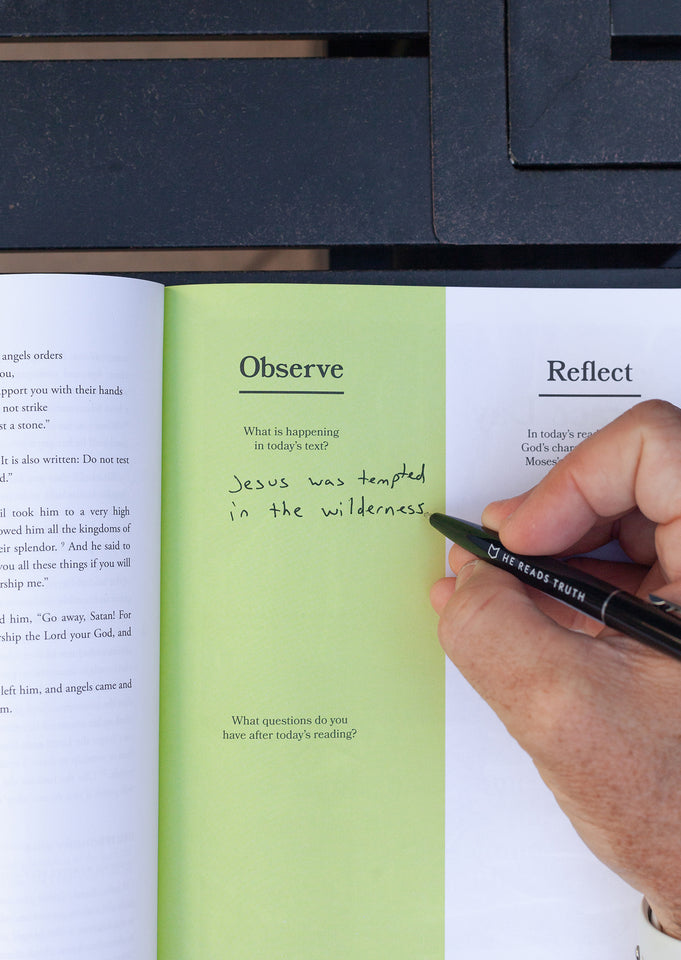 angels orders
ou,
pport you with their hands
not strike
st a stone.”
It is also written: Do not test
d.”
il took him to a very high
owed him all the kingdoms of
eir splendor. 9 And he said to
you all these things if you will
rship me.”
d him, “Go away, Satan! For
rship the Lord your God, and
left him, and angels came and
m.
Observe
What is happening
in today’s text?
Jesus was tempted
in the wilderness.
What questions do you
have after today’s reading?
Reflect
In today’s rea
God’s char
Moses’s
HE READS TRUTH